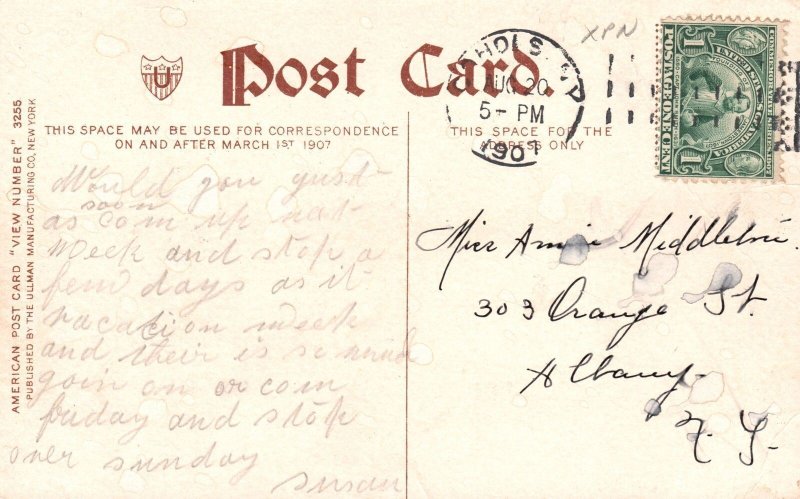 XPN
Post Card.
U
NICHOLS, N.Y.
AUG 20
5- PM
1907
1 POSTAGE ONE CENT 1
THIS SPACE MAY BE USED FOR CORRESPONDENCE
ON AND AFTER MARCH 1ST 1907
THIS SPACE FOR THE
ADDRESS ONLY
AMERICAN POST CARD "VIEW NUMBER" 3255
PUBLISHED BY THE ULLMAN MANUFACTURING CO, NEW YORK
Would you gust
soon
as com up nat
week and stop a
few days as it
vacation week
and their is so much
goin on or com
friday and stop
over sunday
susan
Miss Annie Middleton
303 Orange St.
Albany
N. Y.